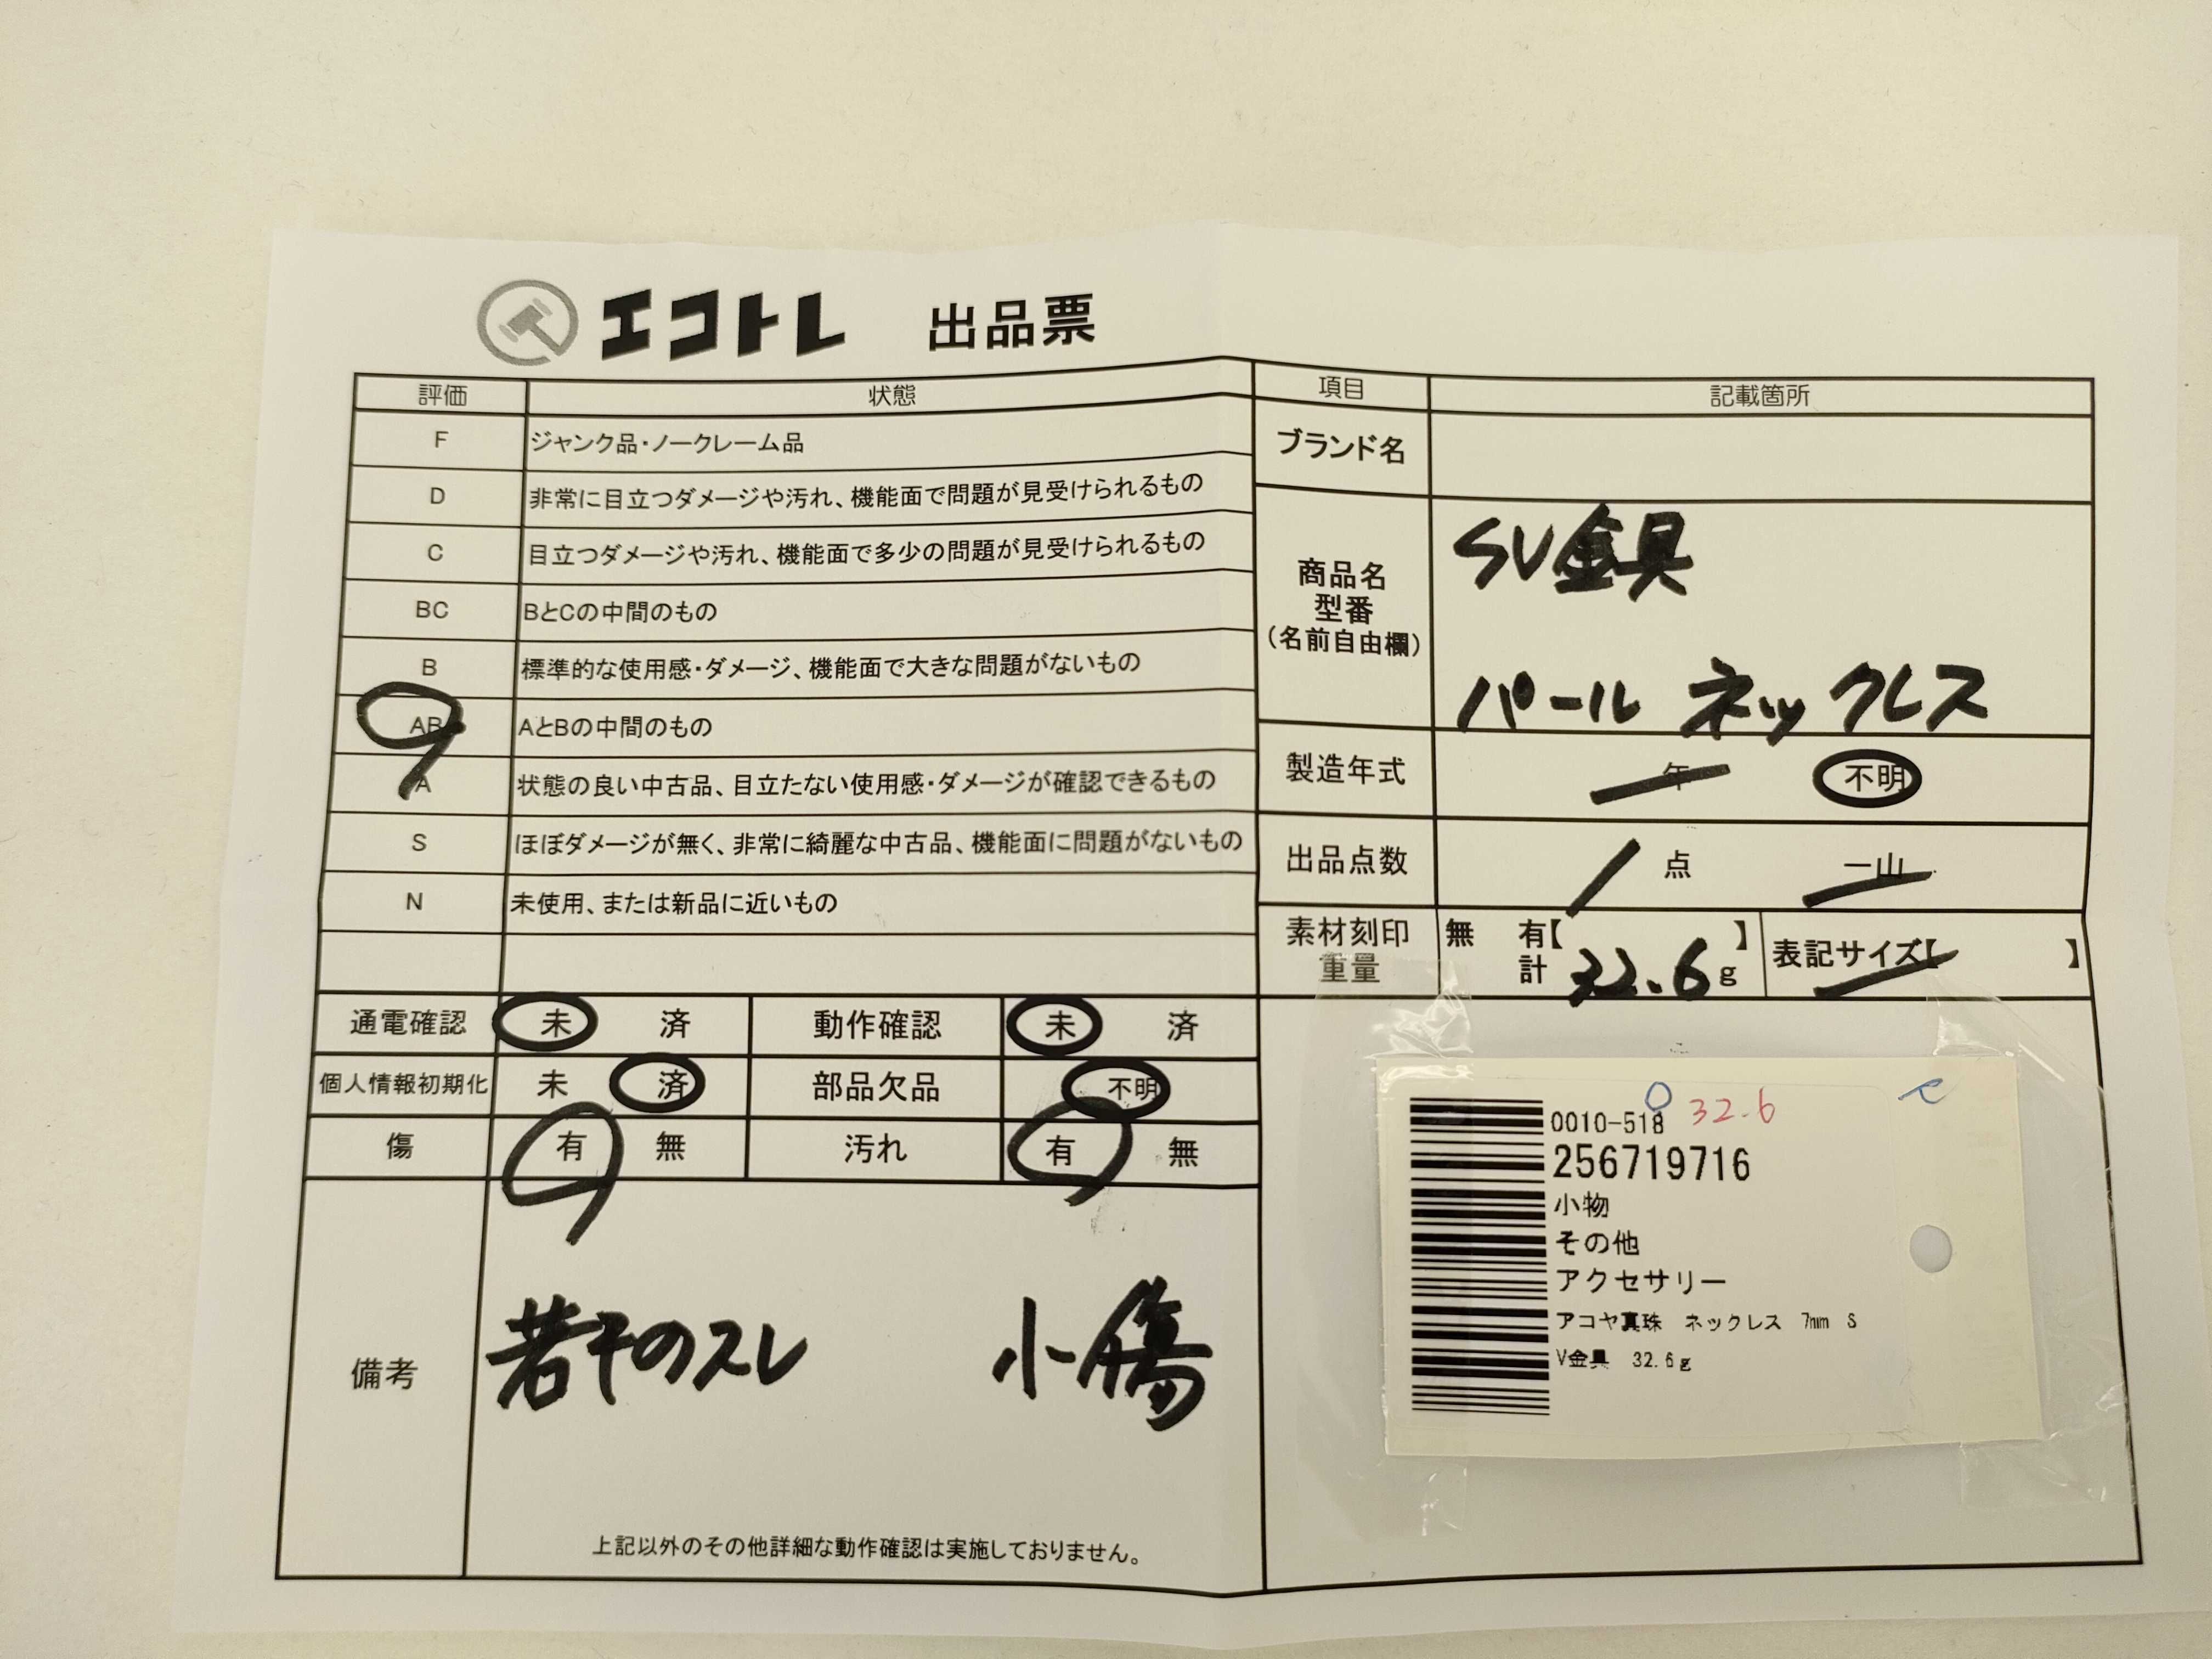 エコトレ 出品票
評価 状態
F ジャンク品・ノークレーム品
D 非常に目立つダメージや汚れ、機能面で問題が見受けられるもの
C 目立つダメージや汚れ、機能面で多少の問題が見受けられるもの
BC BとCの中間のもの
B 標準的な使用感・ダメージ、機能面で大きな問題がないもの
AB AとBの中間のもの
A 状態の良い中古品、目立たない使用感・ダメージが確認できるもの
S ほぼダメージが無く、非常に綺麗な中古品、機能面に問題がないもの
N 未使用、または新品に近いもの
通電確認 未 済 動作確認 未 済
個人情報初期化 未 済 部品欠品 不明
傷 有 無 汚れ 有 無
備考
若干のスレ 小傷
上記以外のその他詳細な動作確認は実施しておりません。
項目 記載箇所
ブランド名
商品名
型番
(名前自由欄)
SV金具
パール ネックレス
製造年式 年 不明
出品点数 1 点 一山
素材刻印 無 有【 】
重量 計 32.6 g
表記サイズ【 】
0010-518 32.6
256719716
小物
その他
アクセサリー
アコヤ真珠 ネックレス 7mm S
V金具 32.6g